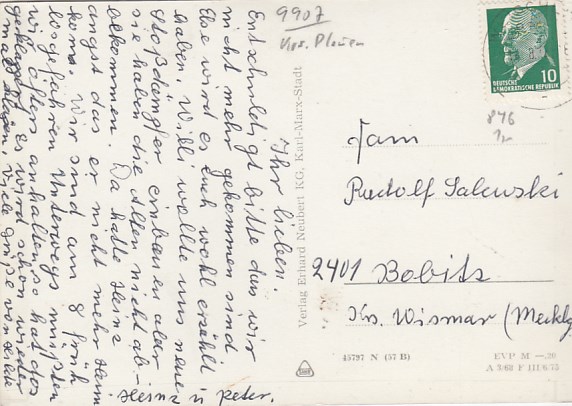 Ihr lieben.
Entschuldigt bitte das wir
nicht mehr gekommen sind
Else wird es Euch wohl erzählt
haben. Willi wollte uns neue
Stoßdämpfer einbauen aber
sie haben die Alten nicht ab-
bekommen. Da hatte Heinz
angst das er nicht mehr Heim
kom. Wir sind am 8 früh
losgefahren. Unterwegs mußten
wir öfters anhalten, so hat das
geklappert. Es wird schon wieder
klappen. Viele Grüße von Hilde
Heinz u Peter.
9907
Krs. Plauen
Verlag Erhard Neubert KG, Karl-Marx-Stadt
DEUTSCHE
DEMOKRATISCHE REPUBLIK
10
876
Fam
Rudolf Salewski
2401 Bobitz
Krs. Wismar (Mecklg
45797 N (57 B)
EVP M —.20
A 3/68 F III/6/73